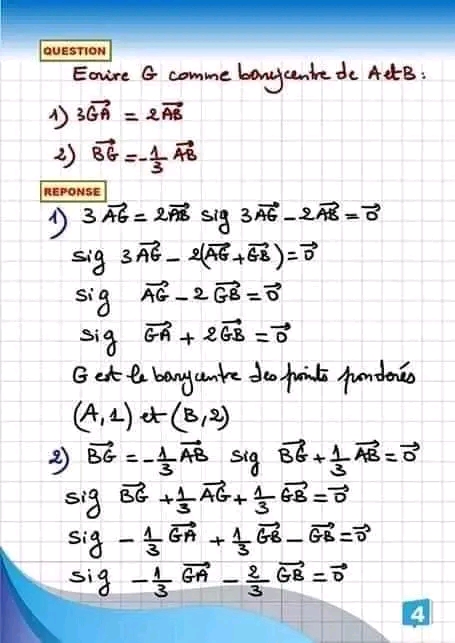 QUESTION
Ecrire G comme barycentre de A et B :
1) 3G⃗A⃗ = 2A⃗B⃗
2) B⃗G⃗ = -1/3 A⃗B⃗
REPONSE
1) 3A⃗G⃗ = 2A⃗B⃗ sig 3A⃗G⃗ - 2A⃗B⃗ = 0⃗
sig 3A⃗G⃗ - 2(A⃗G⃗ + G⃗B⃗) = 0⃗
sig A⃗G⃗ - 2G⃗B⃗ = 0⃗
sig G⃗A⃗ + 2G⃗B⃗ = 0⃗
G est le barycentre des points pondérés
(A,1) et (B,2)
2) B⃗G⃗ = -1/3 A⃗B⃗ sig B⃗G⃗ + 1/3 A⃗B⃗ = 0⃗
sig B⃗G⃗ + 1/3 A⃗G⃗ + 1/3 G⃗B⃗ = 0⃗
sig - 1/3 G⃗A⃗ + 1/3 G⃗B⃗ - G⃗B⃗ = 0⃗
sig - 1/3 G⃗A⃗ - 2/3 G⃗B⃗ = 0⃗
4